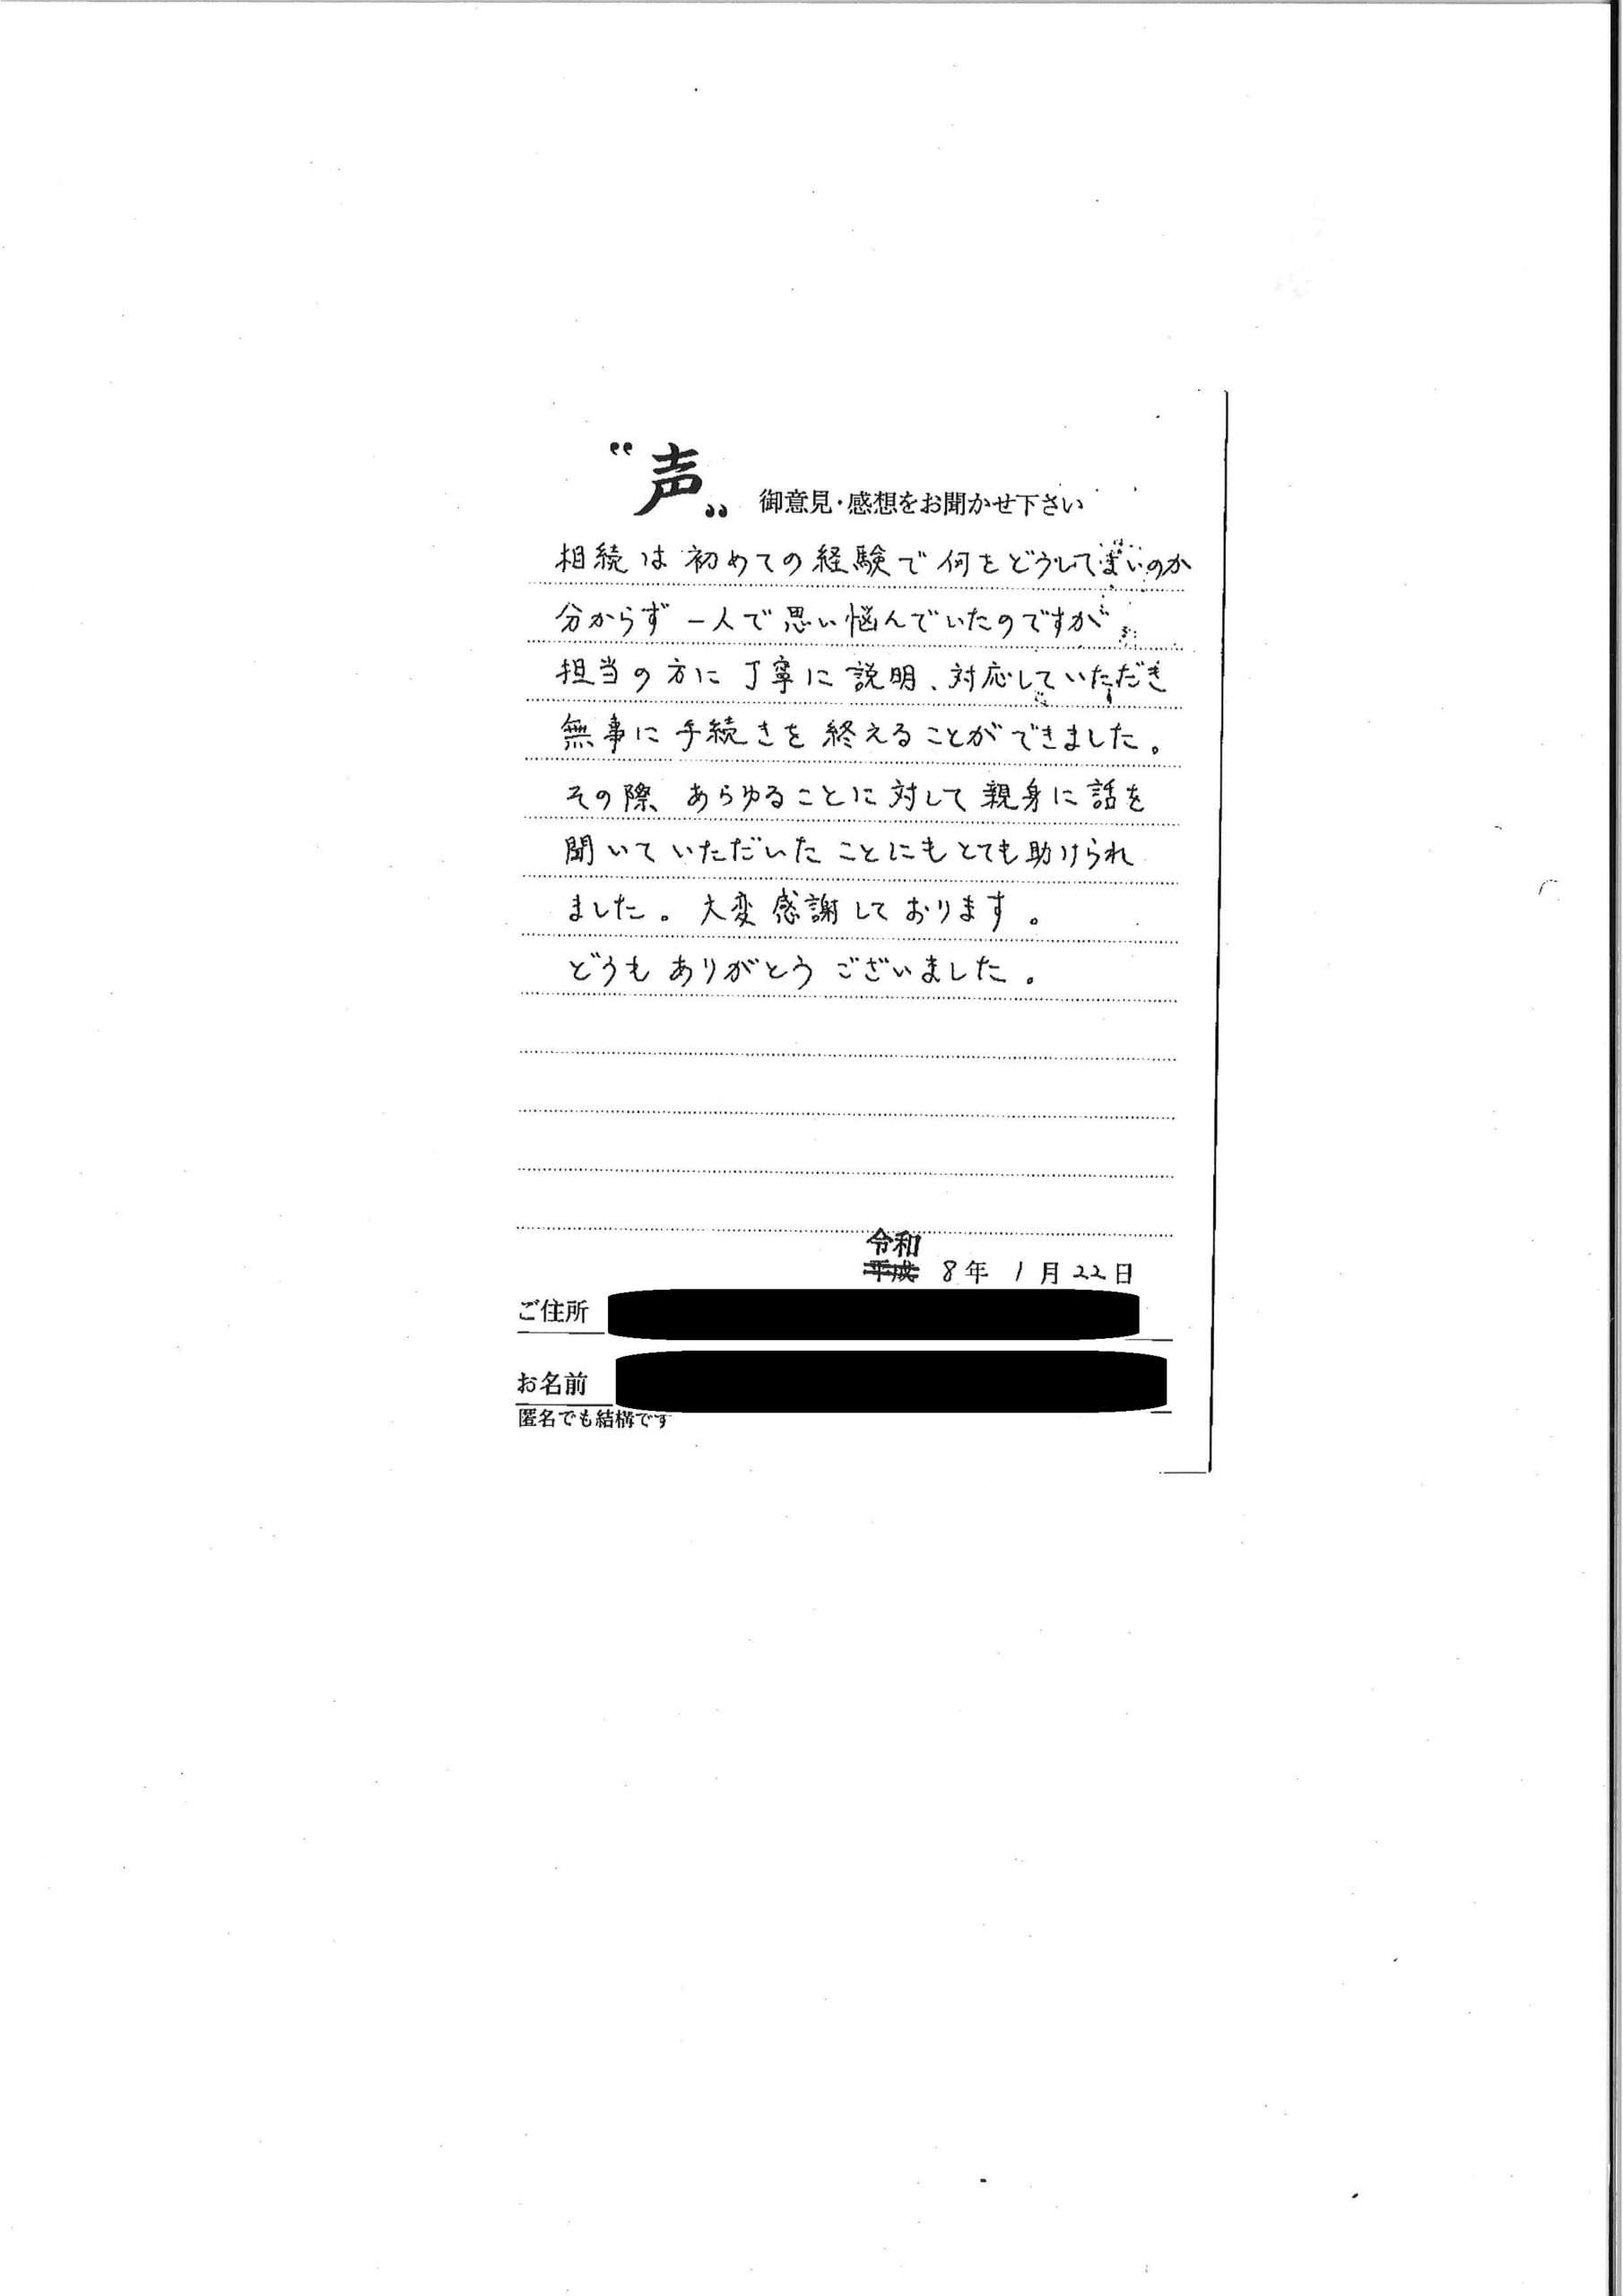 〝声〟 御意見・感想をお聞かせ下さい
相続は初めての経験で何をどうしてよいのか
分からず一人で思い悩んでいたのですが
担当の方に丁寧に説明、対応していただき
無事に手続きを終えることができました。
その際、あらゆることに対して親身に話を
聞いていただいたことにもとても助けられ
ました。大変感謝しております。
どうもありがとうございました。
令和
平成 8年 1月22日
ご住所
お名前
匿名でも結構です